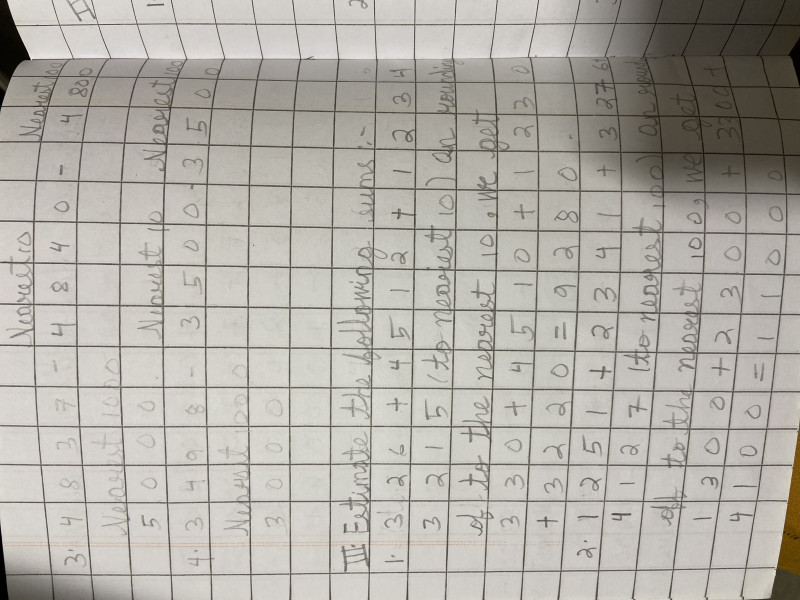 Nearest 10 Nearest 100
3. 4837 - 4840 - 4800
Nearest 1000
5000. Nearest 10 Nearest 100
4. 3498 - 3500 - 3500
Nearest 1000
3000
III Estimate the following sums :-
1. 326 + 4512 + 1234
3215 (to nearest 10) on rounding
of to the nearest 10, we get
330 + 4510 + 1230
+ 3220 = 9280.
2. 1251 + 2341 + 3276
4127 (to nearest 100) on
off to the nearest 100, we get
1300 + 2300 + 3300 +
4100 = 11000